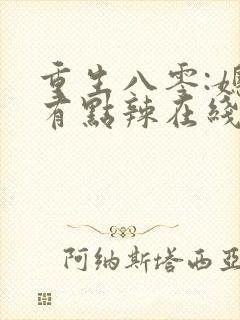 重生八零:媳
有點辣在綫
阿纳斯塔西亚